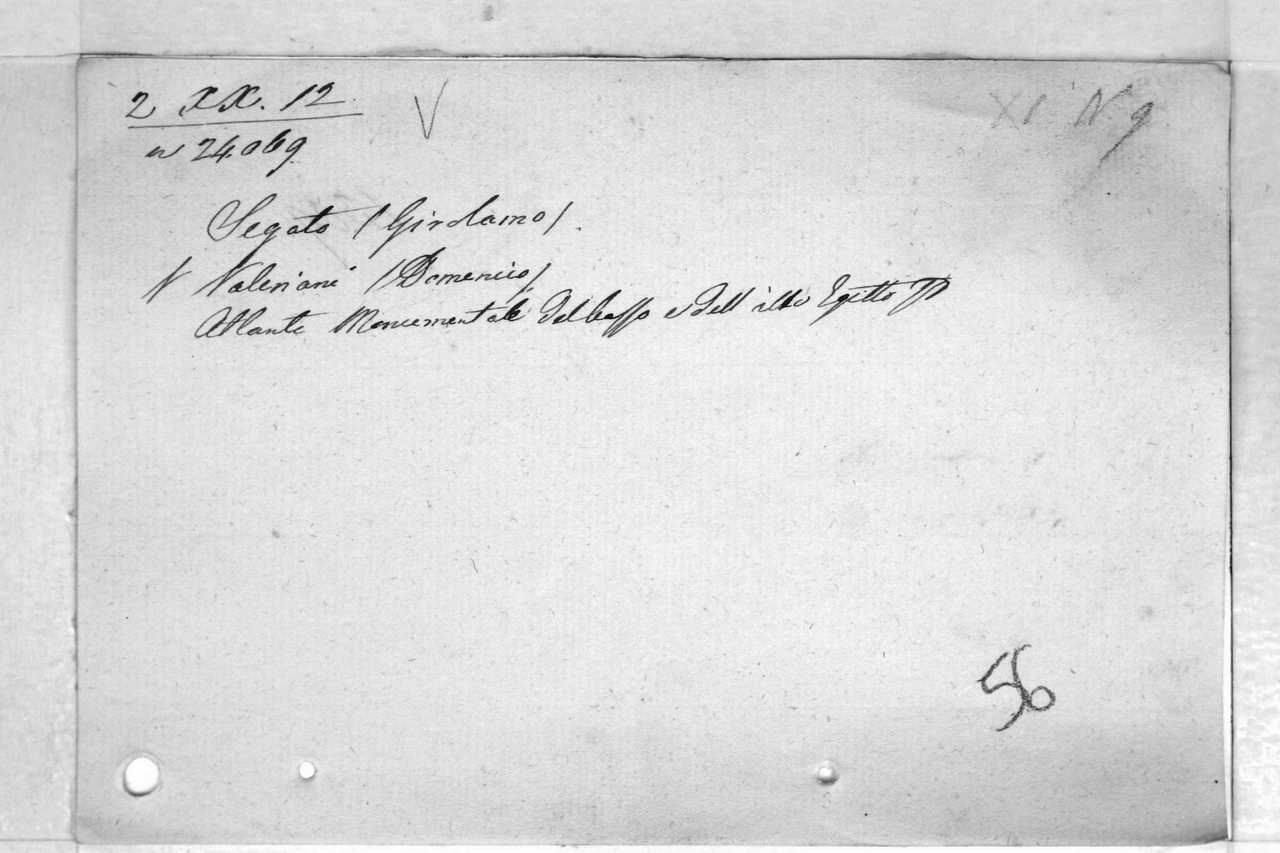 2 XX. 12
XI. N. 9
n 24.069
Segato /Girolamo/.
V Valeriani /Domenico/
Atlante Monumentale del basso e dell'alto Egitto
56